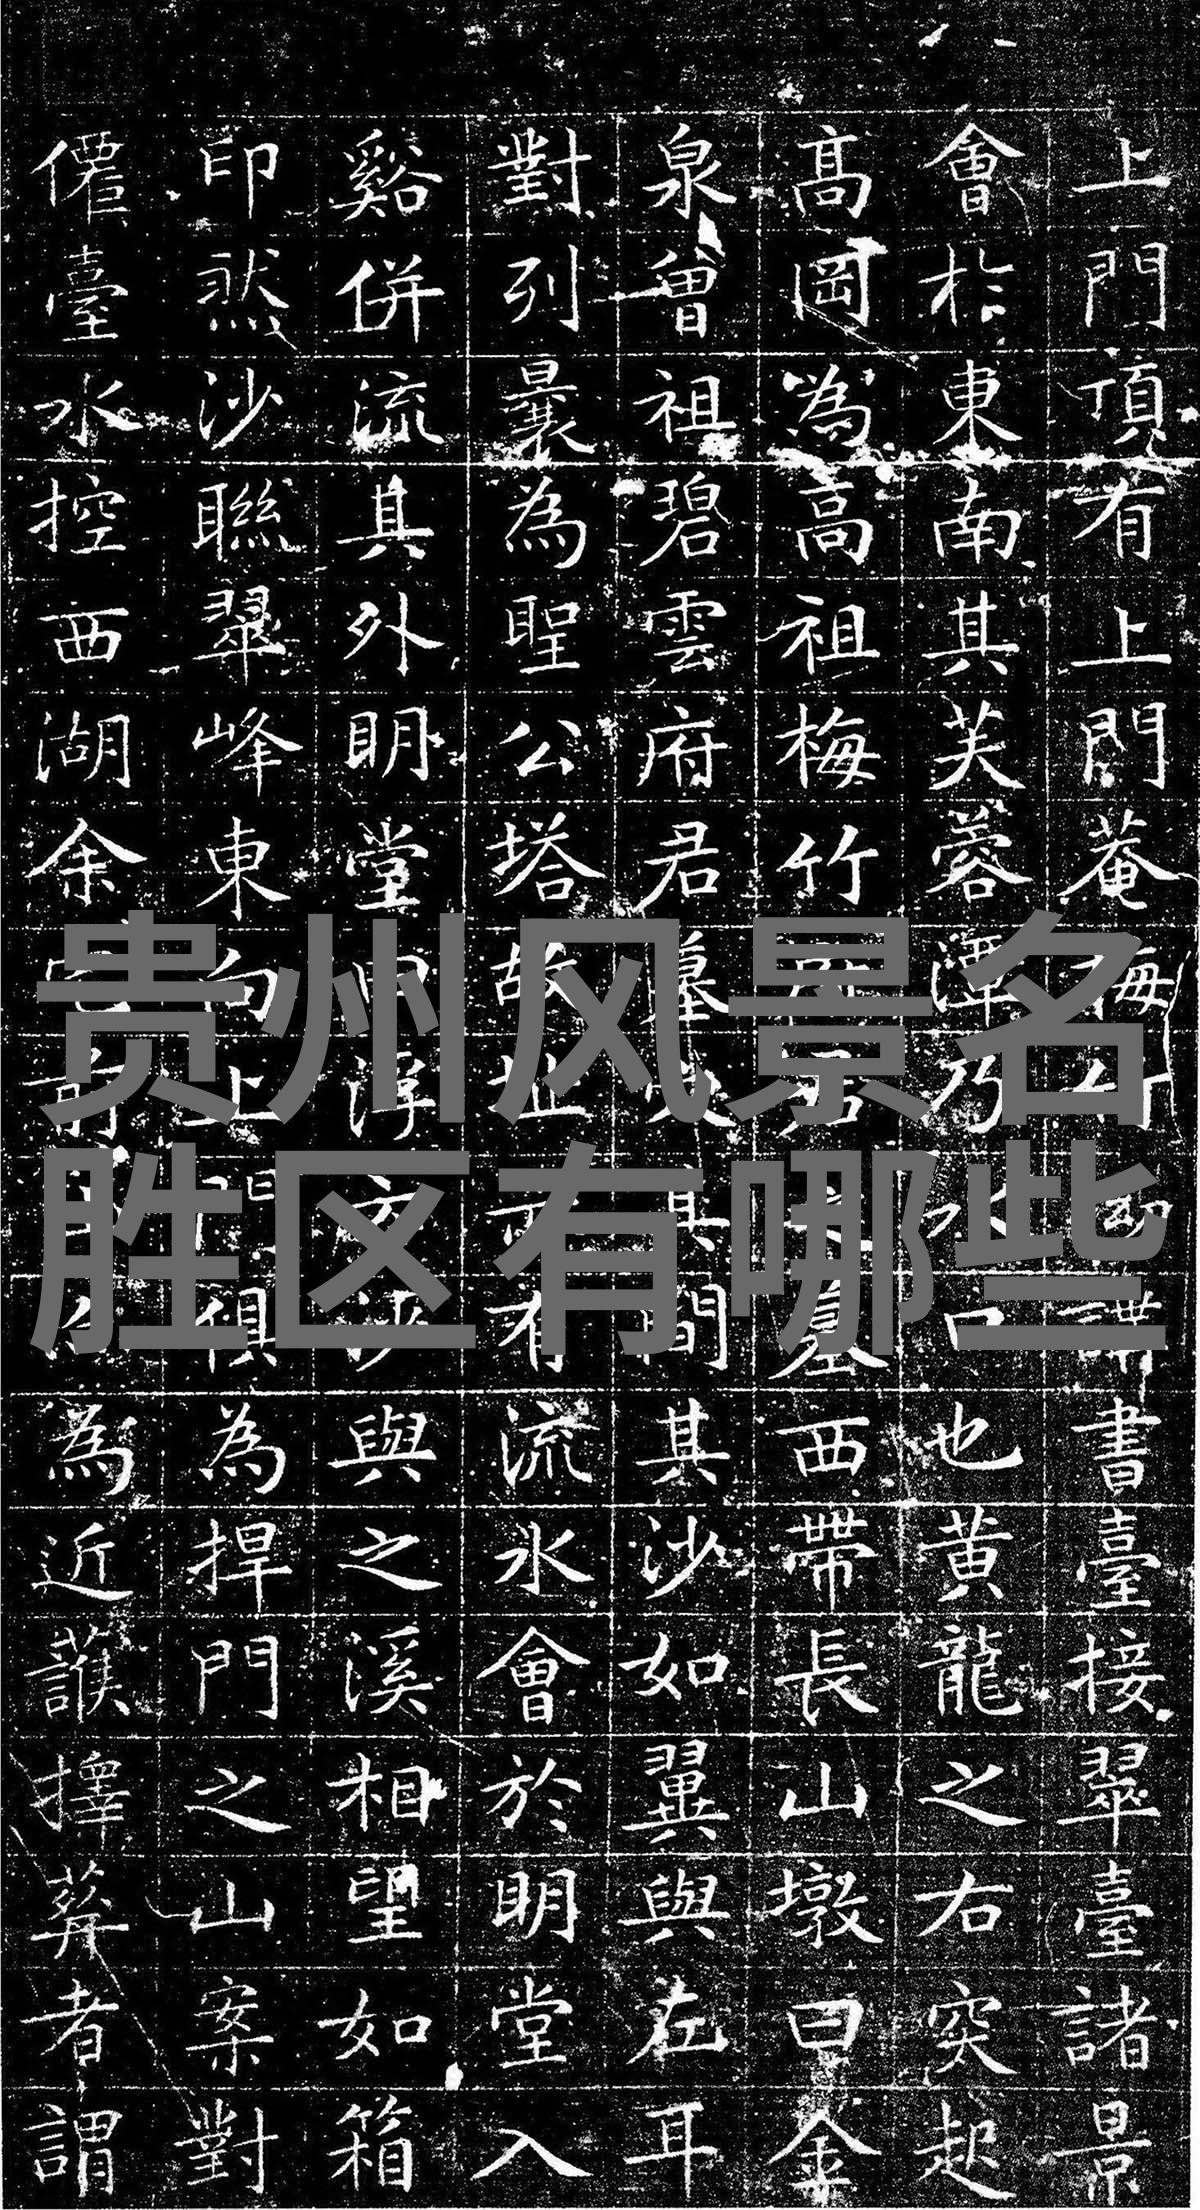 上門頂有上門菴梅講書臺接翠臺諸景
會扵東南其芙蓉潭乃水口也黃龍之右突起
髙岡為高祖梅竹府君之墓西帶長山墩曰金
泉曾祖碧雲府君墓其間其沙如翼與左耳
對列曩為聖公塔故址而有流水會於明堂入
谿併流其外明堂浮沙與之溪相望如箱
印然沙聯翠峰東向上門俱為捍門之山案對
僊臺水控西湖余前為近䕶擇葬者謂
贵州风景名
胜区有哪些